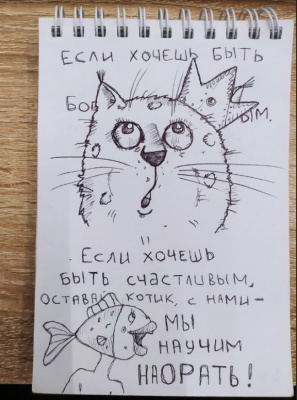 Если хочешь быть
Бог
ым.
Если хочешь
быть счастливым,
оставай котик, с нами –
мы
научим
наорать!